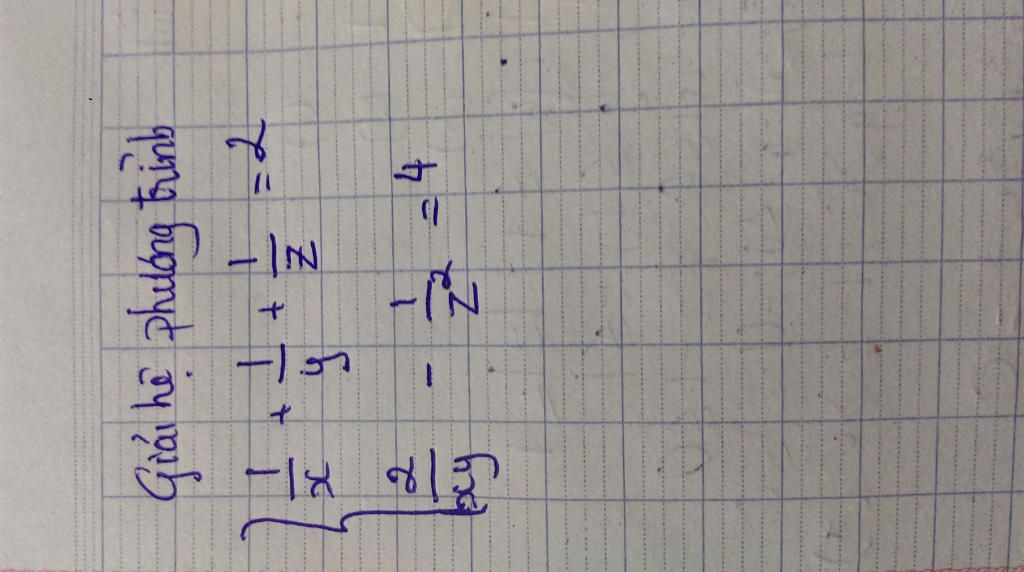 Giải hệ phương trình
1/x + 1/y + 1/z = 2
2/xy - 1/z² = 4